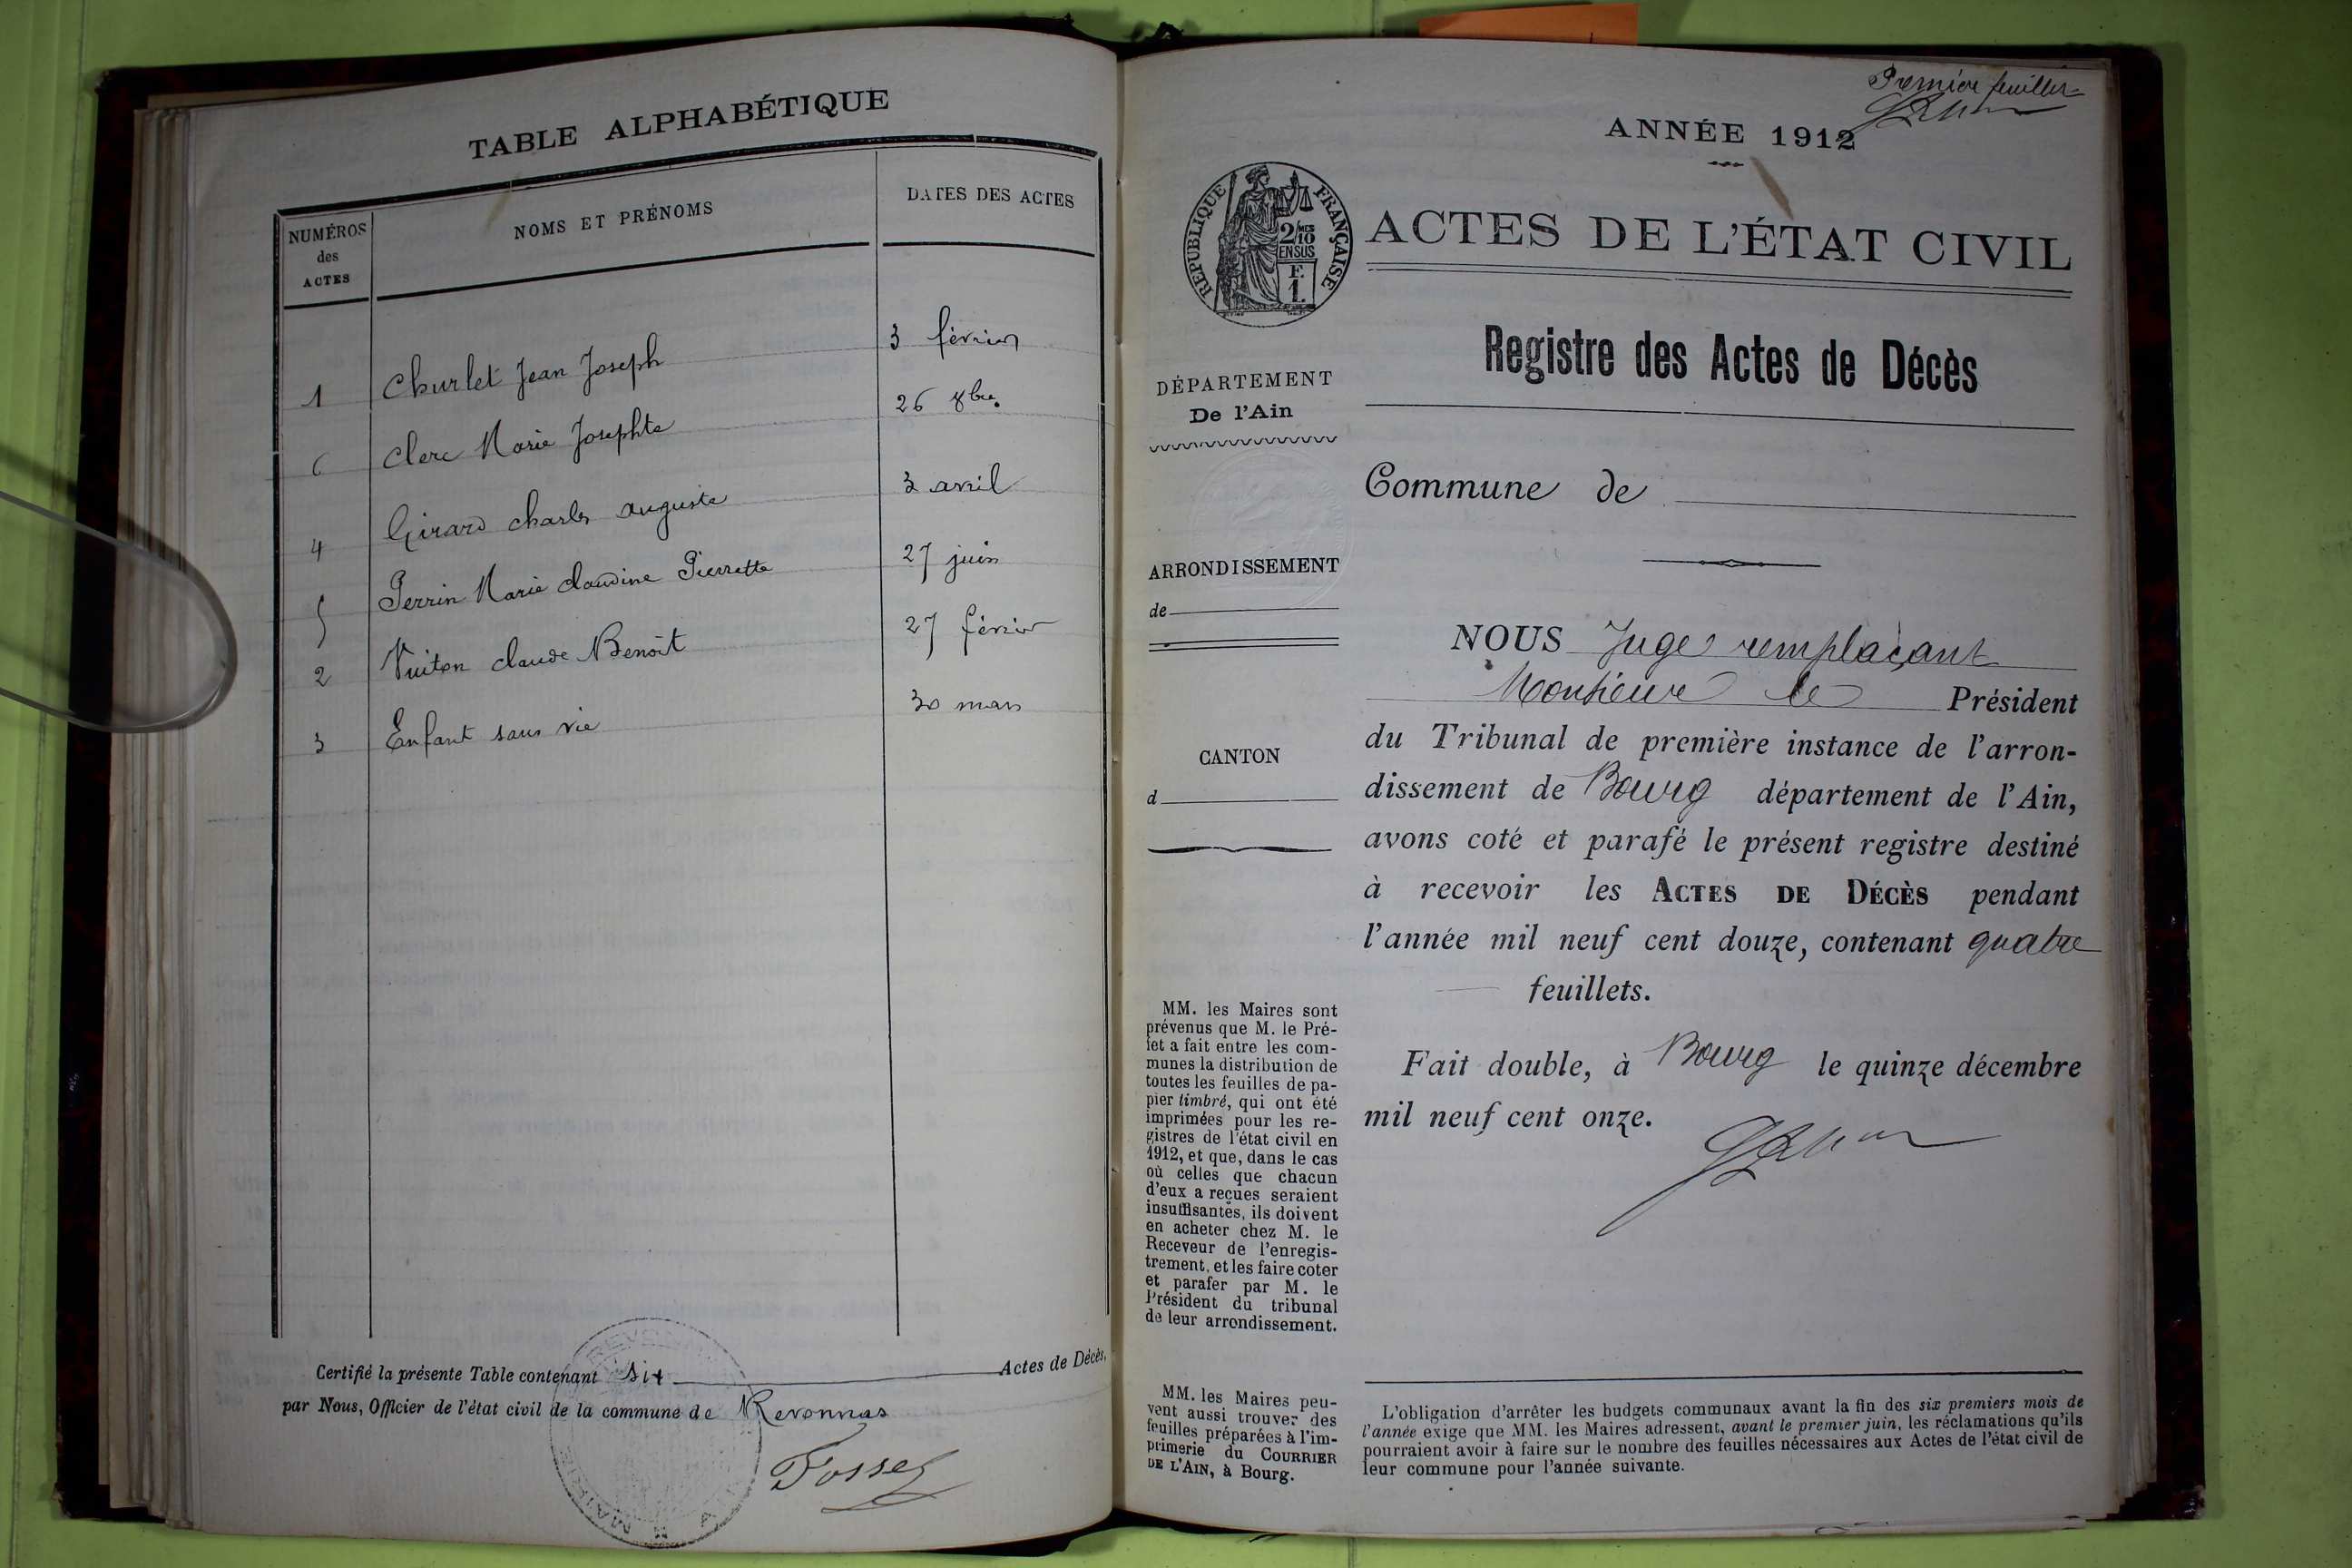 TABLE ALPHABÉTIQUE
NUMÉROS des ACTES
NOMS ET PRÉNOMS
DATES DES ACTES
1 Churlet Jean Joseph 3 février
6 Clerc Marie Josephte 26 8bre.
4 Girard Charles Auguste 3 avril
5 Perrin Marie Claudine Pierrette 27 juin
2 Vuiton Claude Benoit 27 février
3 Enfant sans vie 30 mars
Certifié la présente Table contenant six Actes de Décès,
par Nous, Officier de l'état civil de la commune de Revonnas
MAIRIE
Première feuillet
ANNÉE 1912
RÉPUBLIQUE FRANÇAISE
2/10MES
EN SUS
F.
1.
ACTES DE L'ÉTAT CIVIL
Registre des Actes de Décès
DÉPARTEMENT
De l'Ain
Commune de
ARRONDISSEMENT
de
CANTON
d
NOUS Juge remplaçant
Monsieur le Président
du Tribunal de première instance de l'arron-
dissement de Bourg département de l'Ain,
avons coté et parafé le présent registre destiné
à recevoir les ACTES DE DÉCÈS pendant
l'année mil neuf cent douze, contenant quatre
feuillets.
Fait double, à Bourg le quinze décembre
mil neuf cent onze.
MM. les Maires sont
prévenus que M. le Pré-
fet a fait entre les com-
munes la distribution de
toutes les feuilles de pa-
pier timbré, qui ont été
imprimées pour les re-
gistres de l'état civil en
1912, et que, dans le cas
où celles que chacun
d'eux a reçues seraient
insuffisantes, ils doivent
en acheter chez M. le
Receveur de l'enregis-
trement, et les faire coter
et parafer par M. le
Président du tribunal
de leur arrondissement.
MM. les Maires peu-
vent aussi trouver des
feuilles préparées à l'im-
primerie du COURRIER
DE L'AIN, à Bourg.
L'obligation d'arrêter les budgets communaux avant la fin des six premiers mois de
l'année exige que MM. les Maires adressent, avant le premier juin, les réclamations qu'ils
pourraient avoir à faire sur le nombre des feuilles nécessaires aux Actes de l'état civil de
leur commune pour l'année suivante.